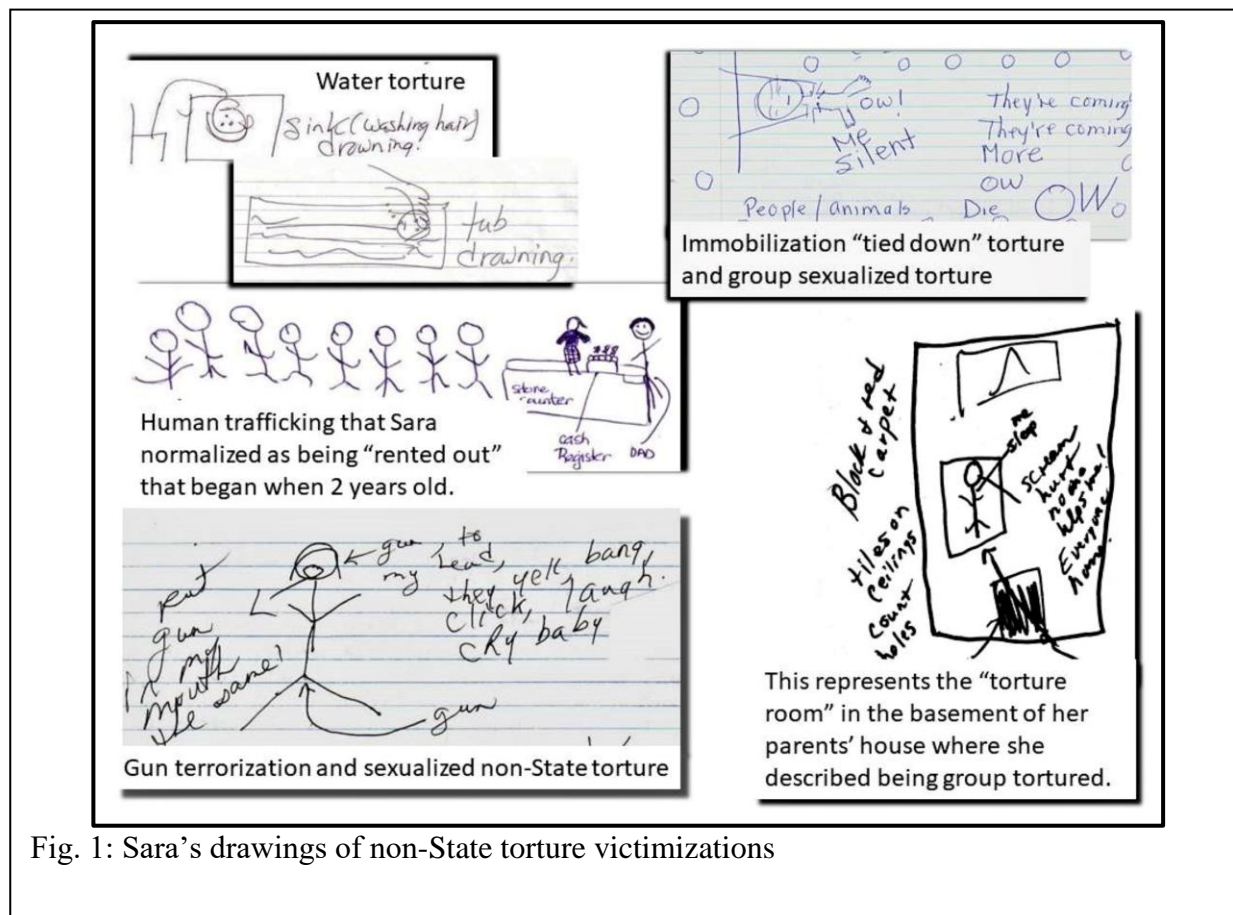 Water torture
sink (washing hair)
drowning!
tub
drowning.
ow!
Me
silent
They're coming
They're coming
More
ow
Die
OW
People / animals
Immobilization “tied down” torture
and group sexualized torture
stone
counter
cash
Register
DAD
Human trafficking that Sara
normalized as being “rented out”
that began when 2 years old.
put
gun
in my
mouth
the same!
gun to
my head,
they yell, bang,
click, laugh.
cry baby
gun
Gun terrorization and sexualized non-State torture
Black & red
carpet
tiles on
ceilings
count
holes
me
sleep
scream
hurt
no one
helps me!
Everyone
home.
This represents the “torture
room” in the basement of her
parents’ house where she
described being group tortured.
Fig. 1: Sara’s drawings of non-State torture victimizations